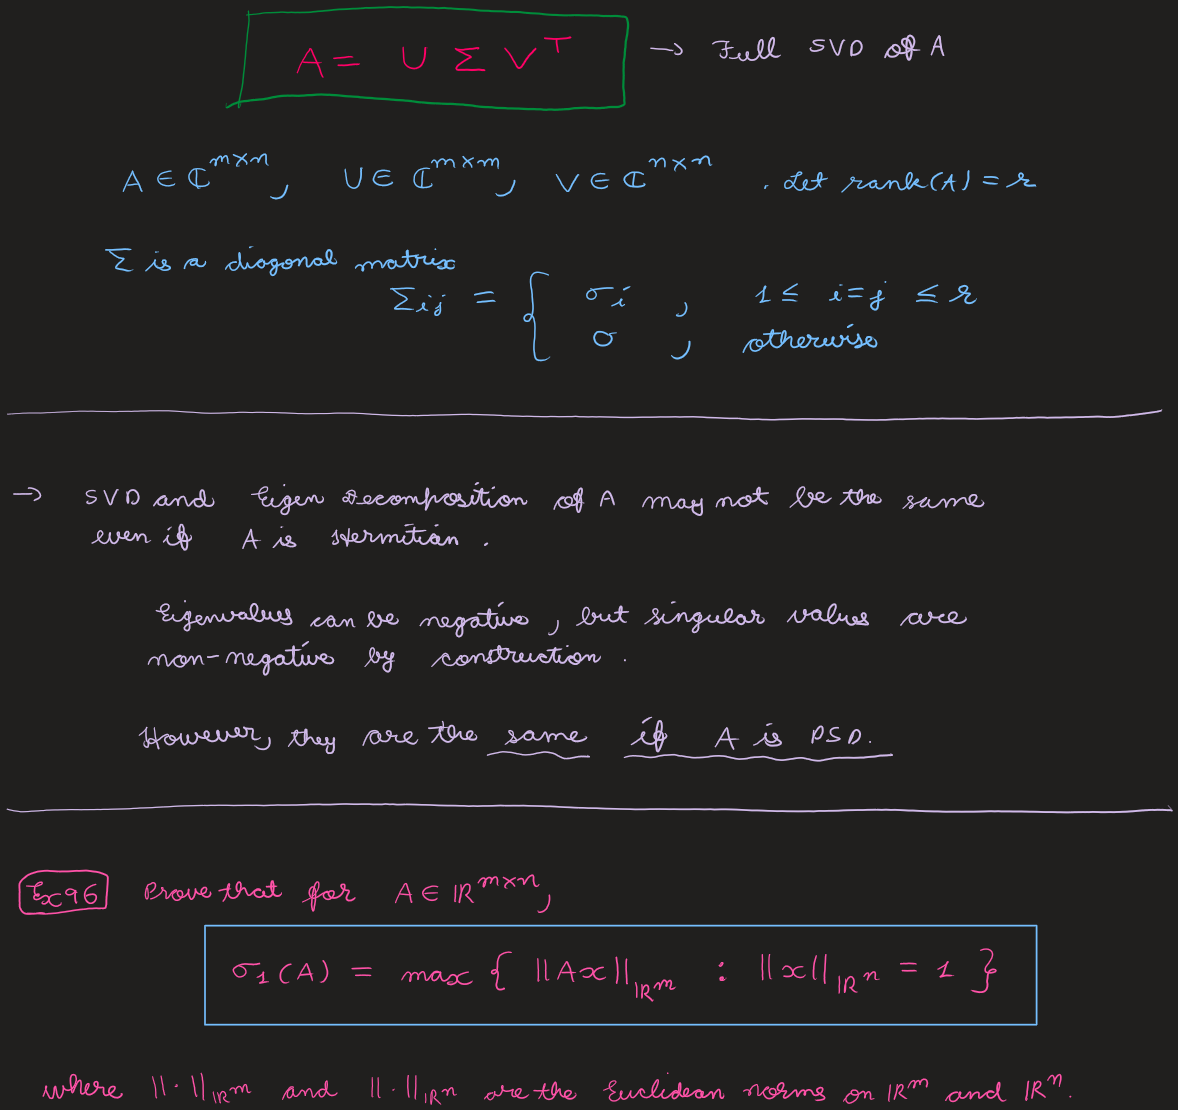 A = U Σ V^T → Full SVD of A
A ∈ ℂ^{m×n}, U ∈ ℂ^{m×m}, V ∈ ℂ^{n×n} . Let rank(A) = r
Σ is a diagonal matrix
Σ_{ij} = { σ_i , 1 ≤ i=j ≤ r
0 , otherwise
→ SVD and Eigen Decomposition of A may not be the same
even if A is Hermitian .
Eigenvalues can be negative, but singular values are
non-negative by construction .
However, they are the same if A is PSD.
Ex 96 Prove that for A ∈ ℝ^{m×n},
σ_1(A) = max { ||Ax||_{ℝ^m} : ||x||_{ℝ^n} = 1 }
where ||·||_{ℝ^m} and ||·||_{ℝ^n} are the Euclidean norms on ℝ^m and ℝ^n.